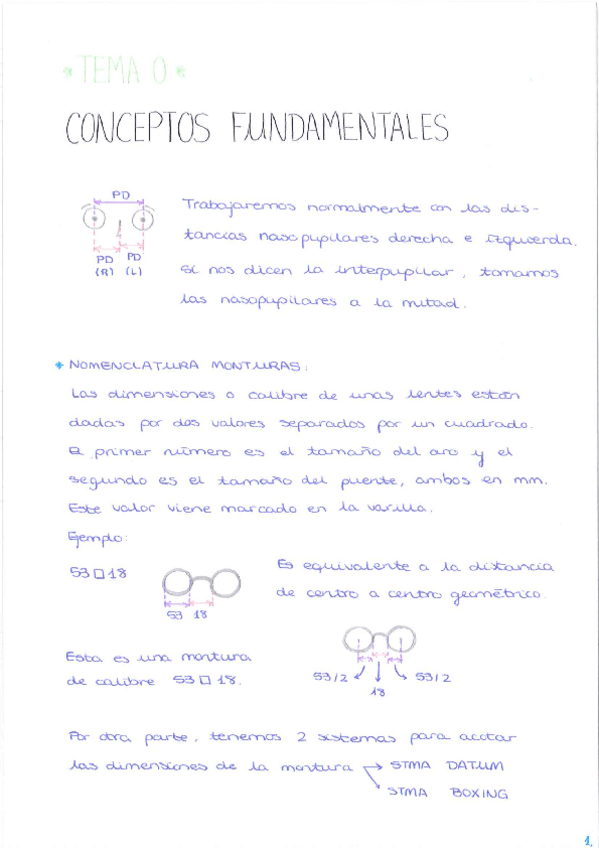 * TEMA 0 *
CONCEPTOS FUNDAMENTALES
PD
PD PD
(R) (L)
Trabajaremos normalmente con las dis-
tancias nasopupilares derecha e izquierda.
Si nos dicen la interpupilar, tomamos
las nasopupilares a la mitad.
* NOMENCLATURA MONTURAS:
Las dimensiones o calibre de unas lentes están
dadas por dos valores separados por un cuadrado.
El primer número es el tamaño del aro y el
segundo es el tamaño del puente, ambos en mm.
Este valor viene marcado en la varilla.
Ejemplo:
53□18
53 18
Es equivalente a la distancia
de centro a centro geométrico.
Esta es una montura
de calibre 53□18.
53/2 53/2
18
Por otra parte, tenemos 2 sistemas para acotar
las dimensiones de la montura → STMA DATUM
STMA BOXING
1.